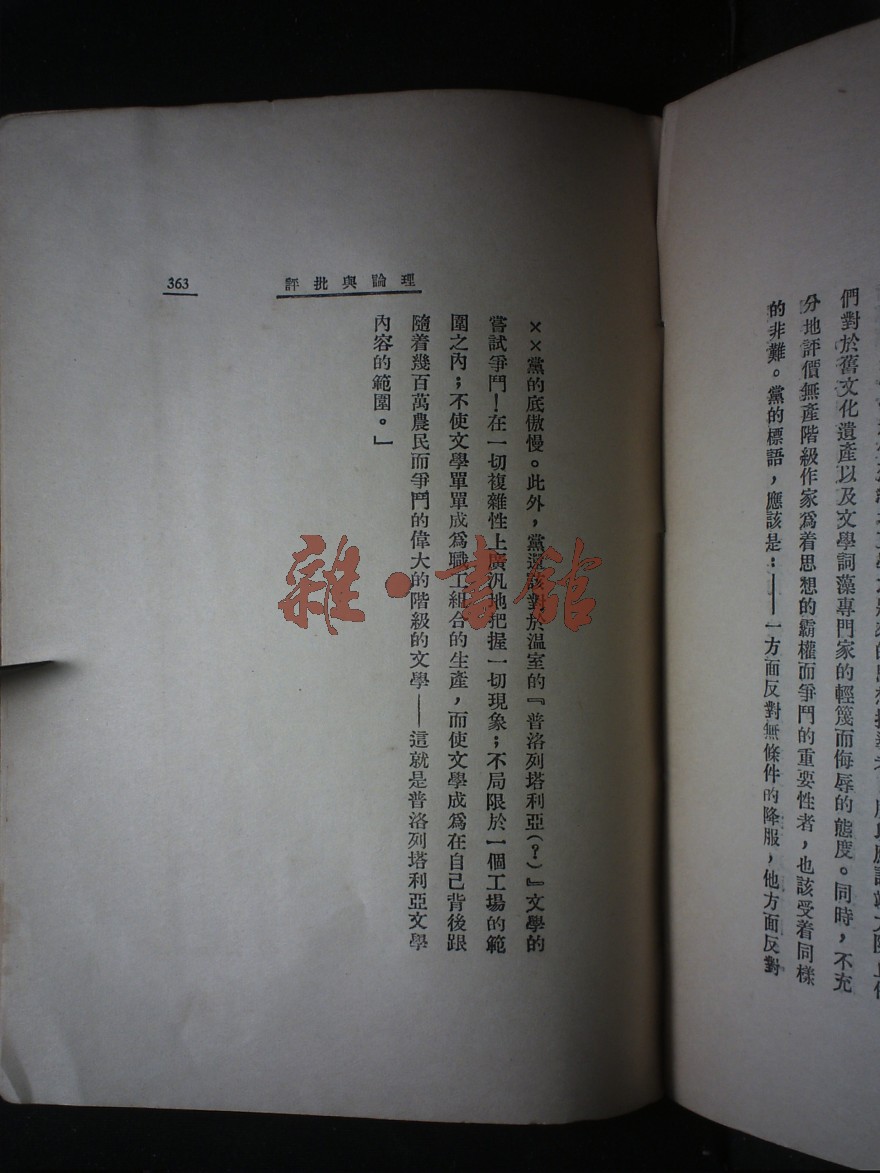 們對於舊文化遺產以及文學詞藻專門家的輕篾而侮辱的態度。同時，不充
分地評價無產階級作家爲着思想的霸權而爭鬥的重要性者，也該受着同樣
的非難。黨的標語，應該是：——一方面反對無條件的降服，他方面反對
理論與批評
363
××黨的底傲慢。此外，黨還該對於溫室的『普洛列塔利亞(？)』文學的
嘗試爭鬥！在一切複雜性上廣汎地把握一切現象；不局限於一個工場的範
圍之內；不使文學單單成爲職工組合的生產，而使文學成爲在自己背後跟
隨着幾百萬農民而爭鬥的偉大的階級的文學——這就是普洛列塔利亞文學
內容的範圍。」
雜·書館